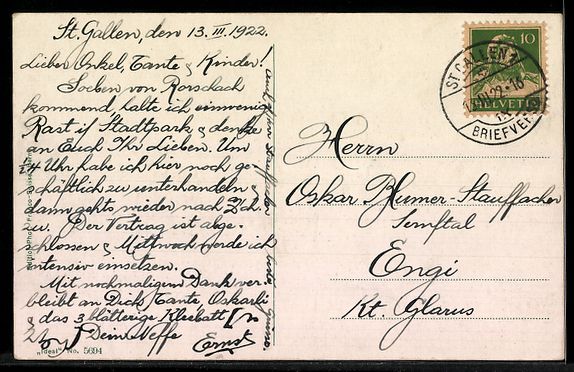 St. Gallen, den 13. III. 1922.
Lieben Onkel, Tante & Kinder!
Soeben von Rorschach
kommend halte ich ein wenig
Rast i/ Stadtpark & denke
an Euch Ihr Lieben. Um
Uhr habe ich hier noch ge-
schäftlich zu unterhandeln &
dann gehts wieder nach Zch.
zu. Der Vertrag ist abge-
schlossen & Mittwoch werde ich
intensiv einsetzen.
Mit nochmaligem Dank ver-
bleibt an Dich, Tante, Oskarli
& das 3 blätterige Kleeblatt
Dein Neffe
Ernst
„Ideal" No. 5694
10
HELVETIA
ST. GALLEN
BRIEFVER
Herrn
Oskar Blumer-Stauffacher
Sernftal
Engi
Kt. Glarus